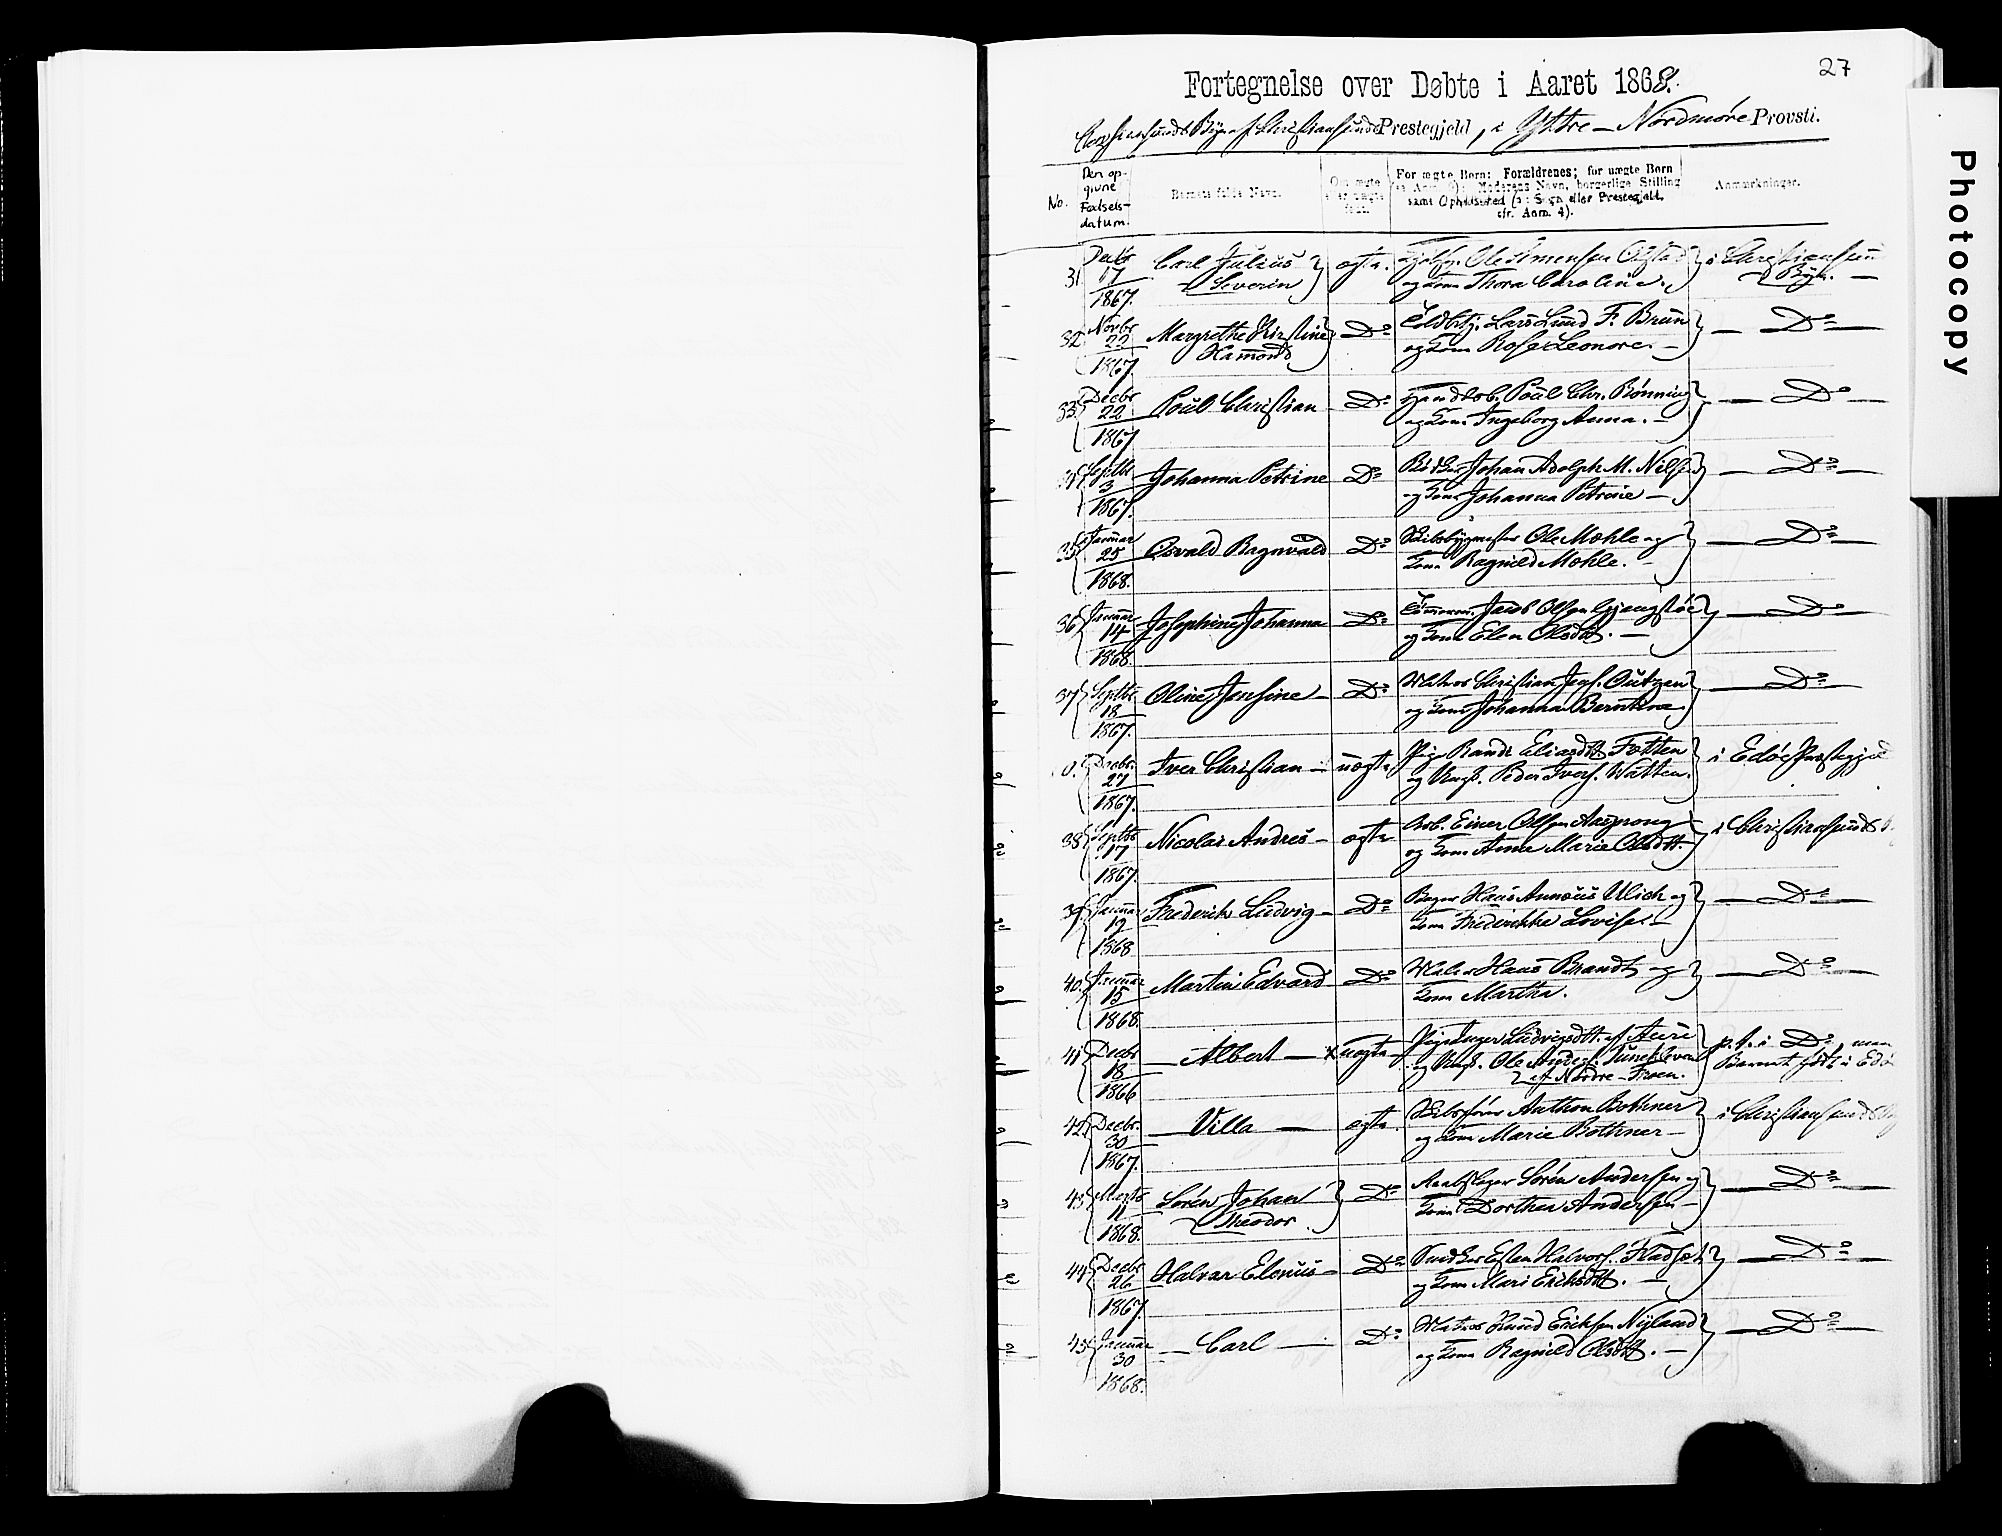 27
Fortegnelse over Døbte i Aaret 1868.
Christiansunds By af Christiansunds Prestegjeld, i Yttre-Nordmøre Provsti.
No.
Den op-
givne
Fødsels-
datum.
Barnets fulde Navn.
Om ægte
eller uægte
født.
For ægte Børn: Forældrenes; for uægte Børn
(se Anm. ): Moderens Navn, borgerlige Stilling
samt Opholdssted (o: Sogn eller Prestegjeld,
cfr. Anm. 4).
Anmærkninger.
31 Decbr 17 1867. Carl Julius Severin ægte. Ole Simensen
og Kone Thora Caroline. i Christiansund By.
32 Novbr 22 1867. Margrethe Kirstine Hamond Do Toldbtj. Lars Lund F. Brun
og Kone Rose Leonore. Do
33. Decbr 22 1867 Poul Christian Do Handlsb. Poul Chr. Rønning
og Kone Ingeborg Anna. Do
34 Septbr 3 1867. Johanna Petrine Do Bødker Johan Adolph M. Nils.
og Kone Johanna Petrine Do
35 Januar 25 1868. Osvald Ragnvald Do Skibsbygmester Ole Mohle og
Kone Ragnild Mohle. Do
36 Januar 14 1868. Josephine Johanna Do Tømmerm. Jacob Olsen
og Kone Elen Olsdtt. Do
37 Septbr 18 1867. Oline Jensine Do Matros Christian Jens.
og Kone Johanna Berntine. Do
0. Decbr. 27 1867. Iver Christian uægte Pige Randi Eliasdtt
og Ungk. Peder Ivers. Watten. i Edøe Prestegjeld
38 Septbr 17 1867. Nicolai Andreas ægte Arb. Einer Olsen
og Kone Anne Marie Olsdtt. i Christiansunds B.
39. Januar 12 1868 Frederik Ludvig Do Bager Hans Ulich og
Kone Frederikke Lovise. Do
40. Januar 15 1868. Martin Edvard Do Maler Hans Brandt og
Kone Martha. Do
41 Decbr 18 1866 Albert x uægte Pige Inger Ludvigsdtt. af Aure
og Ungk. Ole Anders.
af Nordre-Froen. p.t. i Do, men
Barnet født i Edø
42 Decbr. 30 1867. Villa ægte. Skibsfører Anthon Bothner
og Kone Marie Bothner i Christiansunds By
43 Marts 11 1868. Sørén Johan Theodor. Do Sørén Andersen og
Kone Dorthea Andersen Do
44 Decbr 26 1867. Halvar Elenius Do Snedker Esten Halvors. Fladset
og Kone Mari Eriksdtt. Do
45 Januar 30 1868. Carl Do Matros Knud Eriksen Nyland
og Kone Ragnild Olsdtt. Do
Photocopy